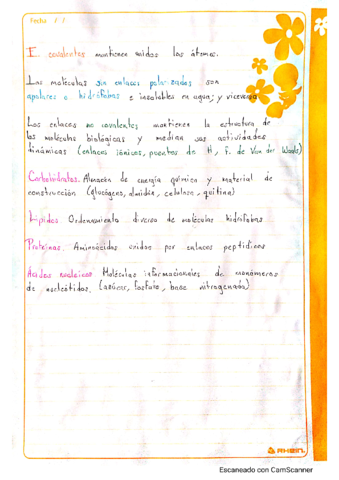 Fecha / /
E covalentes mantienen unidos los átomos.
Las moléculas sin enlaces polarizados son
apolares o hidrófobas e insolubles en agua; y viceversa
Los enlaces no covalentes mantienen la estructura de
las moléculas biológicas y median sus actividades
dinámicas (enlaces iónicos, puentes de H, F. de Van der Waals)
Carbohidratos. Almacén de energía química y material de
construcción (glucógeno, almidón, celulosa, quitina)
Lípidos. Ordenamiento diverso de moléculas hidrófobas
Proteínas. Aminoácidos unidos por enlaces peptídicos
Ácidos nucleicos Moléculas informacionales de monómeros
de nucleótidos. (azúcar, fosfato, base nitrogenada)
Escaneado con CamScanner